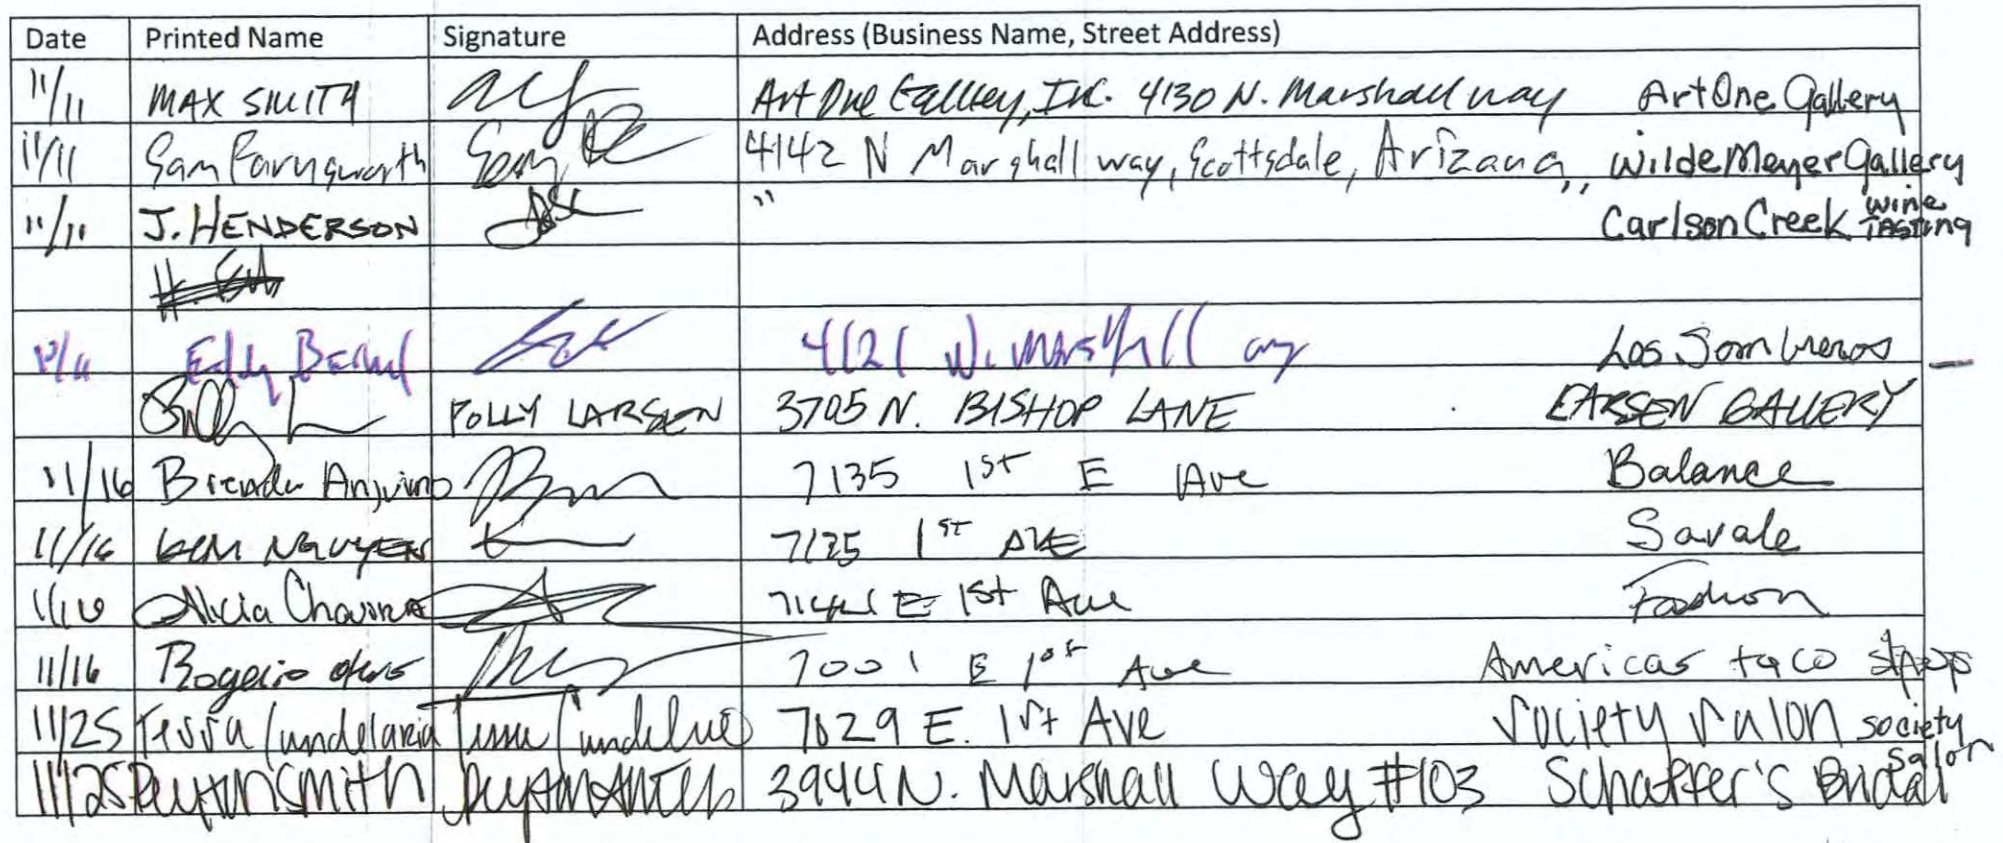 Date Printed Name Signature Address (Business Name, Street Address)
11/11 MAX SMITH Art One Gallery, Inc. 4130 N. Marshall way ArtOne Gallery
11/11 Sam Farnsworth 4142 N Marshall way, Scottsdale, Arizana, Wilde Meyer Gallery
11/11 J. HENDERSON " Carlson Creek wine TASTING
4121 N. Marshall way Los Sombreros
POLLY LARSEN 3705 N. BISHOP LANE LARSEN GALLERY
11/16 Brenda 7135 1st E Ave Balance
11/16 KIM NGUYEN 7125 1st AVE
Alicia E 1st Ave Fashion
11/16 Rogelio 7001 E 1st Ave Americas taco shops
11/25 Tessa Candelaria 7029 E. 1st Ave Society Salon society salon
11/25 Peyton Smith 3944 N. Marshall Way #103 Schaffer's Bridal